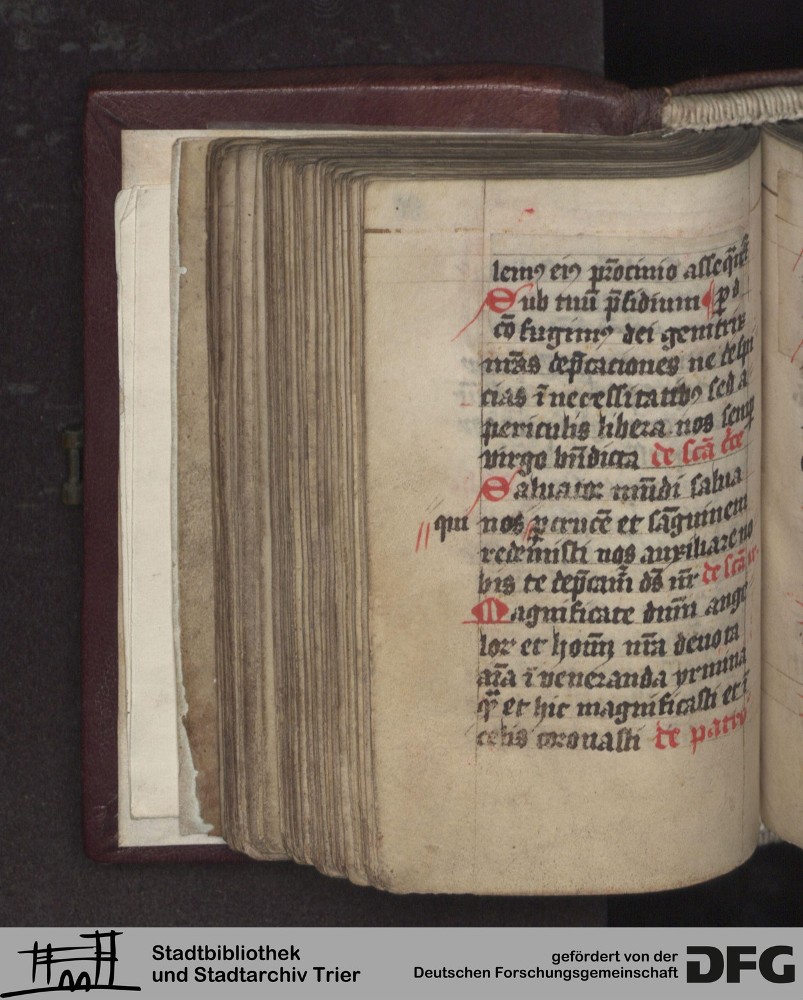 lemꝰ eiꝰ p̄rocinio asseq̄
Sub tuū p̄sidium
cō fugimꝰ dei genitrix
nr̄as dep̄cationes ne despi
cias ī necessitatibꝰ sed a
periculis libera nos semp
virgo bn̄dicta de scā cͨe
Saluator mūdi salua
qui nos ꝑ crucē et sāguinem
redemisti nos auxiliare no
bis te dep̄cam̄ ds̄ nr̄ de scā
Magnificate dnm̄ ange
lor et hoīm nr̄a deuota
aīa ī veneranda
et hic magnificasti et ī
celis coronasti de patrō
Stadtbibliothek
und Stadtarchiv Trier
gefördert von der
Deutschen Forschungsgemeinschaft
DFG